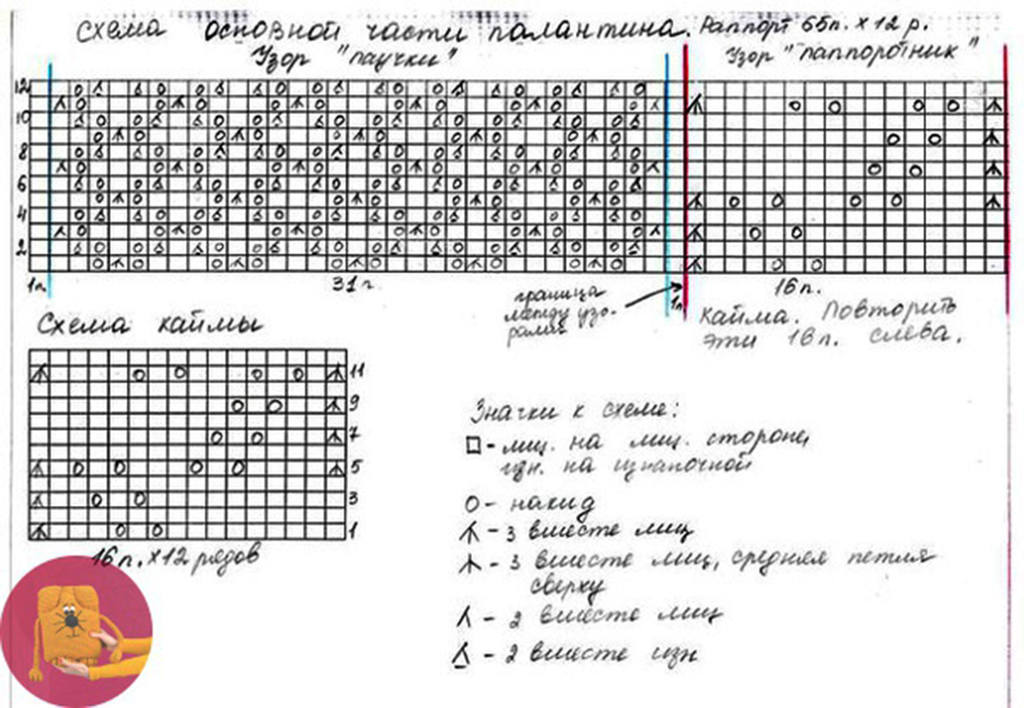 Схема основной части палантина. Раппорт 65п. х 12 р.
Узор "паучки"
Узор "паппоротник"
12
10
8
6
4
2
1п.
31п.
граница
между узо-
рами
1п.
16п.
Кайма. Повторить
эти 16п. слева.
Схема каймы
11
9
7
5
3
1
16п. х 12 рядов
Значки к схеме:
□ - лиц. на лиц. стороне,
изн. на изнаночной
О - накид
- 3 вместе лиц
- 3 вместе лиц, средняя петля
сверху
- 2 вместе лиц
- 2 вместе изн